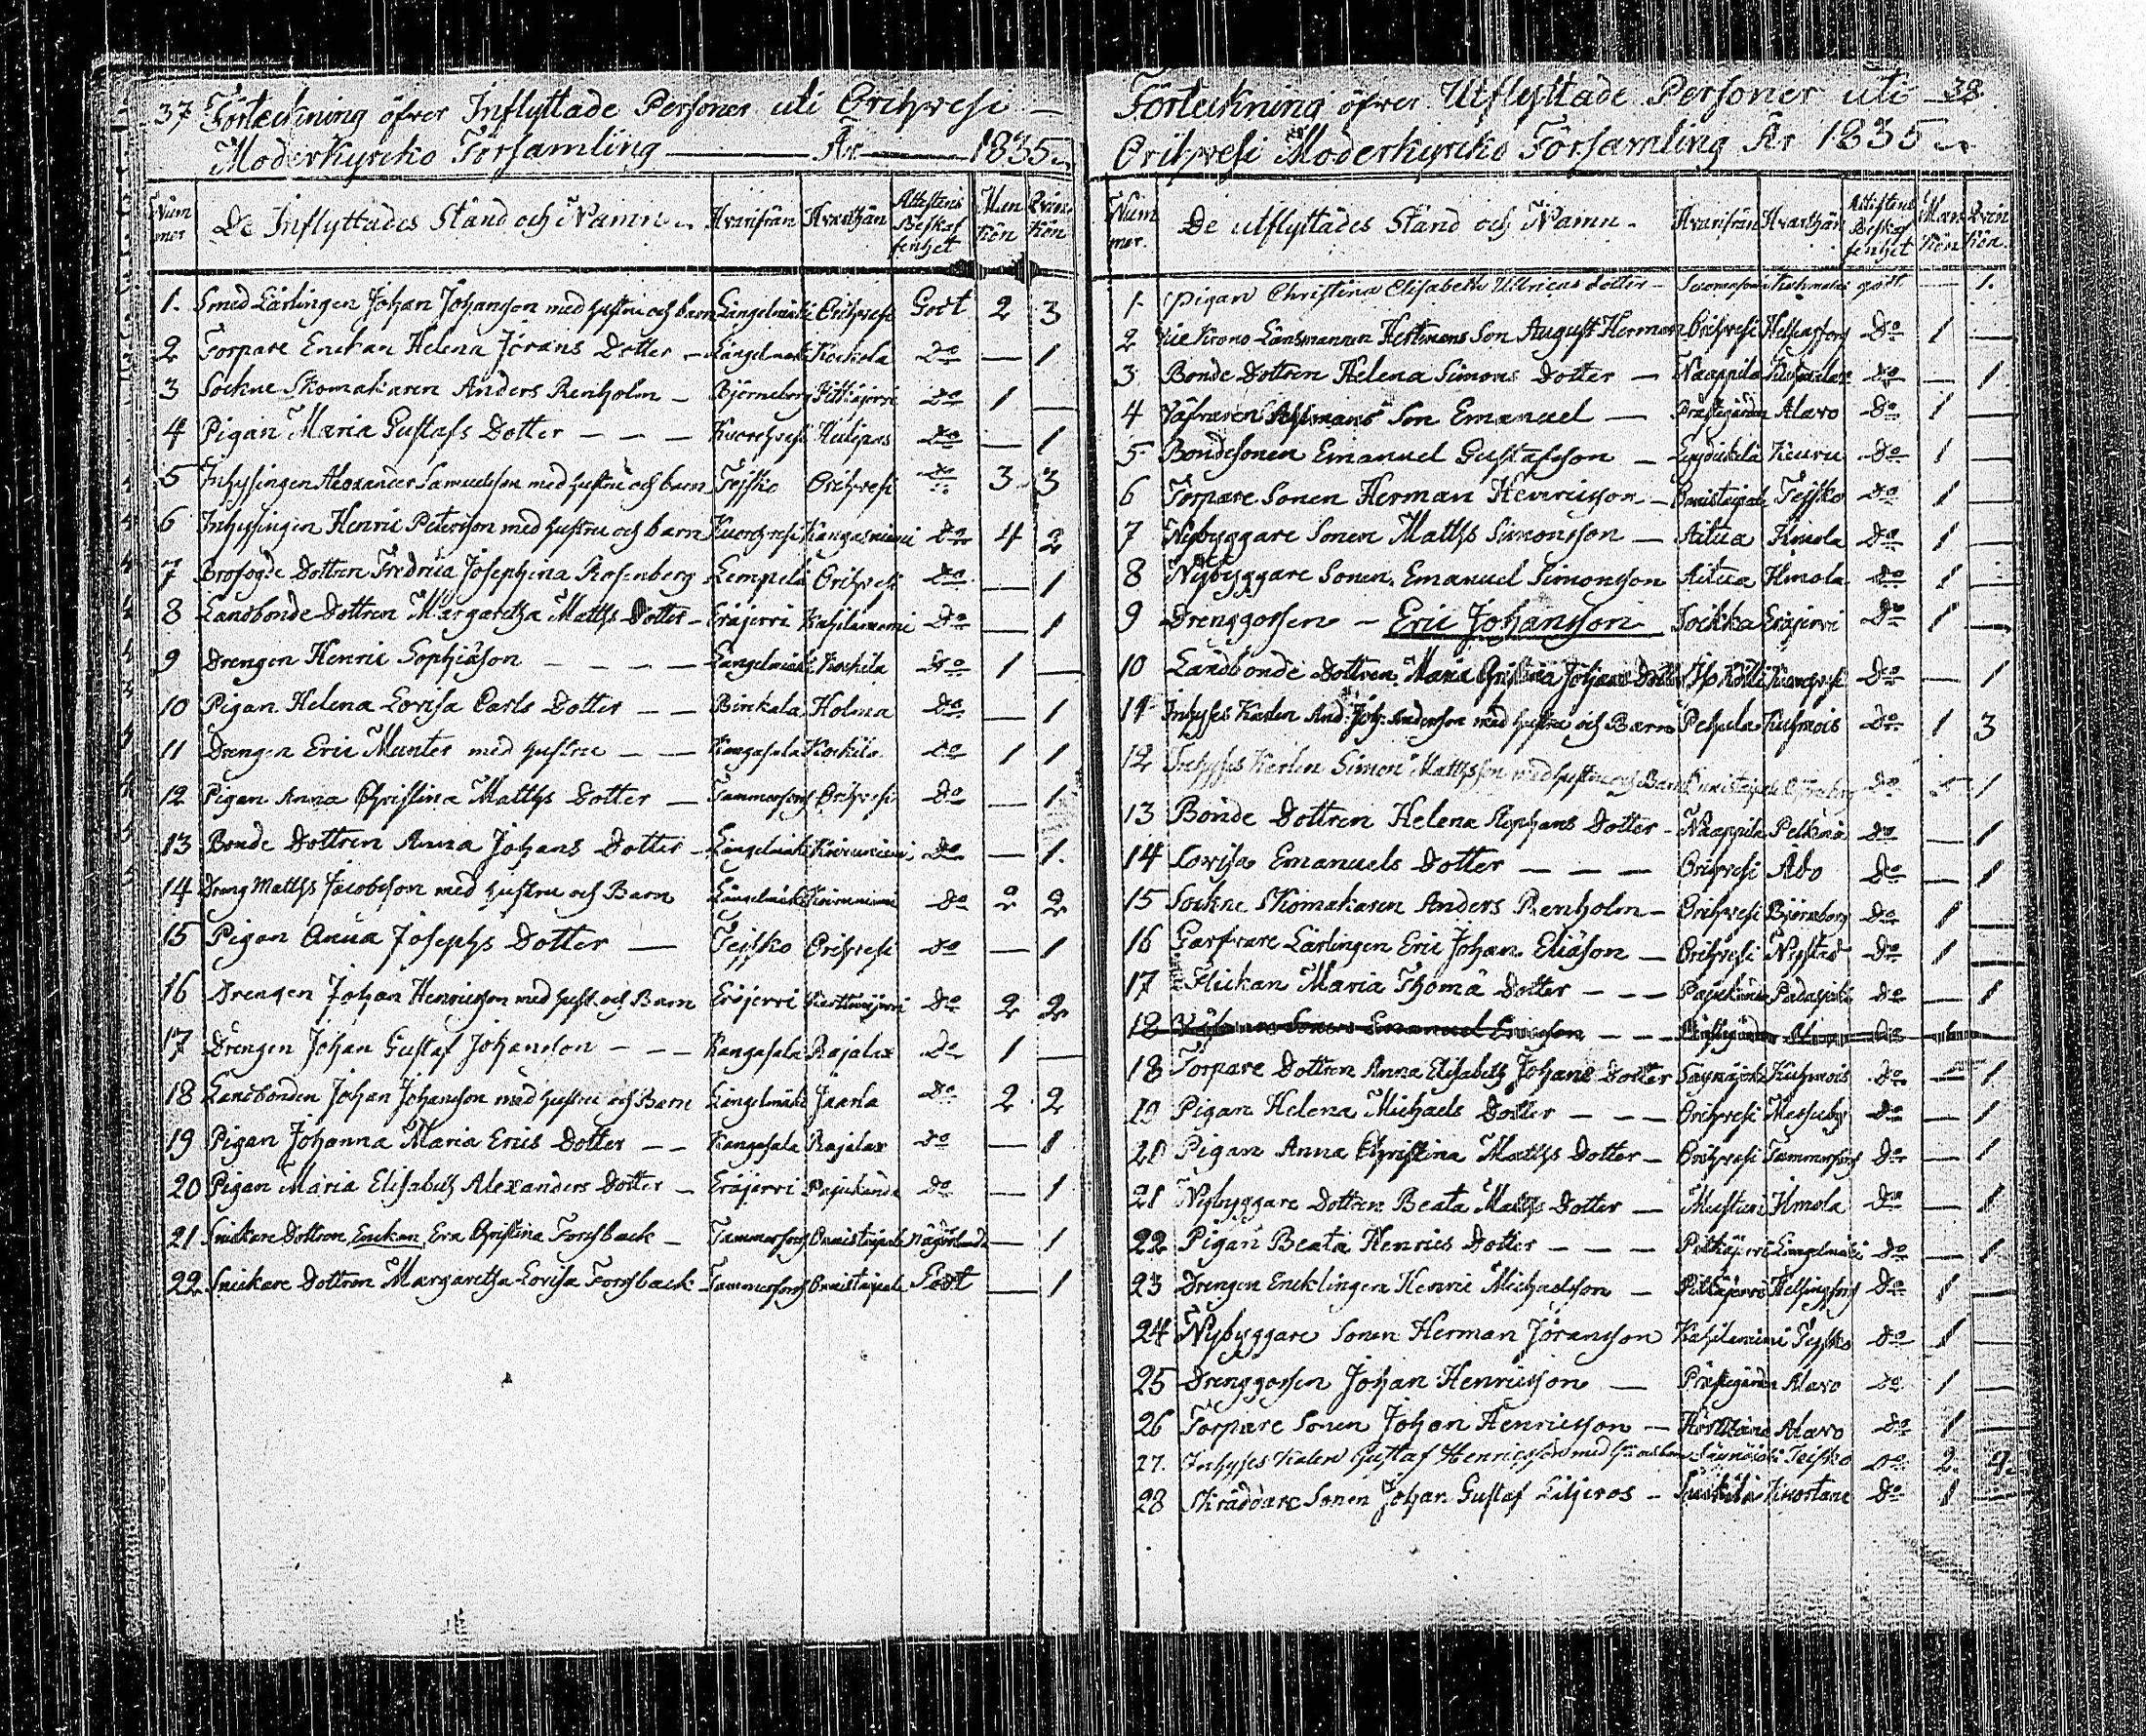 37 Förteckning öfver Inflyttade Personer uti Orihvesi
Moderkyrko Församling År 1835
Num mer De Inflyttades Stånd och Namn Hvarifrån Hvarthän Attestens Beskaf fenhet Men Kön Qvin Kön
1. Smed Lärlingen Johan Johanson med hustru och barn Längelmäki Orihvesi Godt 2 3
2 Torpare Enckan Helena Jörans Dotter Längelmäki Kockola Do — 1
3 Sockne Skomakaren Anders Renholm Björneborg Pittkäjervi Do 1 —
4 Pigan Maria Gustafs Dotter Kuorehvesi Do — 1
5 Inhysingen Alexander Samuelsson med hustru och barn Teisko Orihvesi Do 3 3
6 Inhysingen Henric Petersson med hustru och barn Kuorehvesi Kangasniemi Do 4 2
7 Brofogde Dottren Fredrica Josephina Rosenberg Lempela Orihvesi Do — 1
8 Landbonde Dottren Margaretha Matths Dotter Eräjervi Kahilaniemi Do — 1
9 Drengen Henric Sophiäson Längelmäki Kockila Do 1 —
10 Pigan Helena Lovisa Carls Dotter Birckala Holma Do — 1
11 Drengen Eric Munter med hustru Kangasala Kockila Do 1 1
12 Pigan Anna Christina Matths Dotter Tammerfors Orihvesi Do — 1
13 Bonde Dottren Anna Johans Dotter Längelmäki Koivuniemi Do — 1.
14 Dreng Matths Jacobsson med hustru och Barn Längelmäki Koivuniemi Do 2 2
15 Pigan Anna Josephs Dotter Teisko Orihvesi Do — 1
16 Drengen Johan Henricsson med hust. och Barn Eräjervi Do 2 2
17 Drengen Johan Gustaf Johansson Kangasala Rajalax Do 1 —
18 Landbonden Johan Johansson med hustru och Barn Längelmäki Jaarla Do 2 2
19 Pigan Johanna Maria Erics Dotter Kangasala Rajalax Do — 1
20 Pigan Maria Elisabeth Alexanders Dotter Eräjervi Pajukanda Do — 1
21 Snickare Dottren Enckan Eva Christina Forssback Tammerfors Onnistaipale — 1
22 Snickare Dottren Margaretha Lovisa Forssback Tammerfors Onnistaipale Godt — 1
Förteckning öfver Utflyttade Personer uti 38
Orihvesi Moderkyrko Församling År 1835
Num mer. De utflyttades Stånd och Namn. Hvarifrån Hvarthän Attestens Beskaf fenhet Men Kön Qvin Kön.
1. Pigan Christina Elisabeth Ullricas dotter godt — 1.
2 Vice Krono Länsmannen Son August Herman Orihvesi Helsingfors Do 1 —
3 Bonde Dottren Helena Simons Dotter Naappila Do — 1
4 Son Emanuel Prästgården Alavo Do 1 —
5 Bondesonen Emanuel Gustafsson Keuru Do 1 —
6 Torpare Sonen Herman Henricsson Onnistaipale Teisko Do 1 —
7 Nybyggare Sonen Matths Simonsson Aitua Ilmola Do 1 —
8 Nybyggare Sonen Emanuel Simonsson Aitua Ilmola Do 1 —
9 Drenggossen Eric Johansson Eräjervi Do 1 —
10 Landbonde Dottren Maria Christina Johans Dotter Kuorehvesi Do — 1
11 Inhyses Karlen And: Joh: Andersson med hustru och Barn Pehula Kuhmois Do 1 3
12 Inhyses Karlen Simon Mattsson med hustru och Barn Onnistaipale Do 1
13 Bonde Dottren Helena Stephans Dotter Naappila Pelkänä Do — 1
14 Lovisa Emanuels Dotter Orihvesi Åbo Do — 1
15 Sockne Skomakaren Anders Renholm Orihvesi Björneborg Do 1
16 Garfvare Lärlingen Eric Johan Eliäson Orihvesi Nystad Do 1 —
17 Flickan Maria Thomä Dotter Padasjoki Do — 1
18 Sonen Emanuel Prästgården Do
18 Torpare Dottren Anna Elisabeth Johans Dotter Säynäjoki Kuhmois Do — 1
19 Pigan Helena Michaels Dotter Orihvesi Messuby Do — 1
20 Pigan Anna Christina Matths Dotter Orihvesi Tammerfors Do — 1
21 Nybyggare Dottren Beata Matths Dotter Ilmola Do — 1
22 Pigan Beata Henrics Dotter Pitkäjervi Längelmäki Do — 1
23 Drengen Encklingen Henric Michaelsson Pitkäjervi Helsingfors Do 1 —
24 Nybyggare Sonen Herman Göransson Kahilaniemi Teisko Do 1 —
25 Drenggossen Johan Henricsson Prästgården Alavo Do 1 —
26 Torpare Sonen Johan Henricsson Alavo Do 1 —
27. Inhyses Karlen Gustaf Henricsson med Säynäjoki Teisko Do 2.
28 Skräddare Sonen Johan Gustaf Liljeros Kuortane Do 1 —